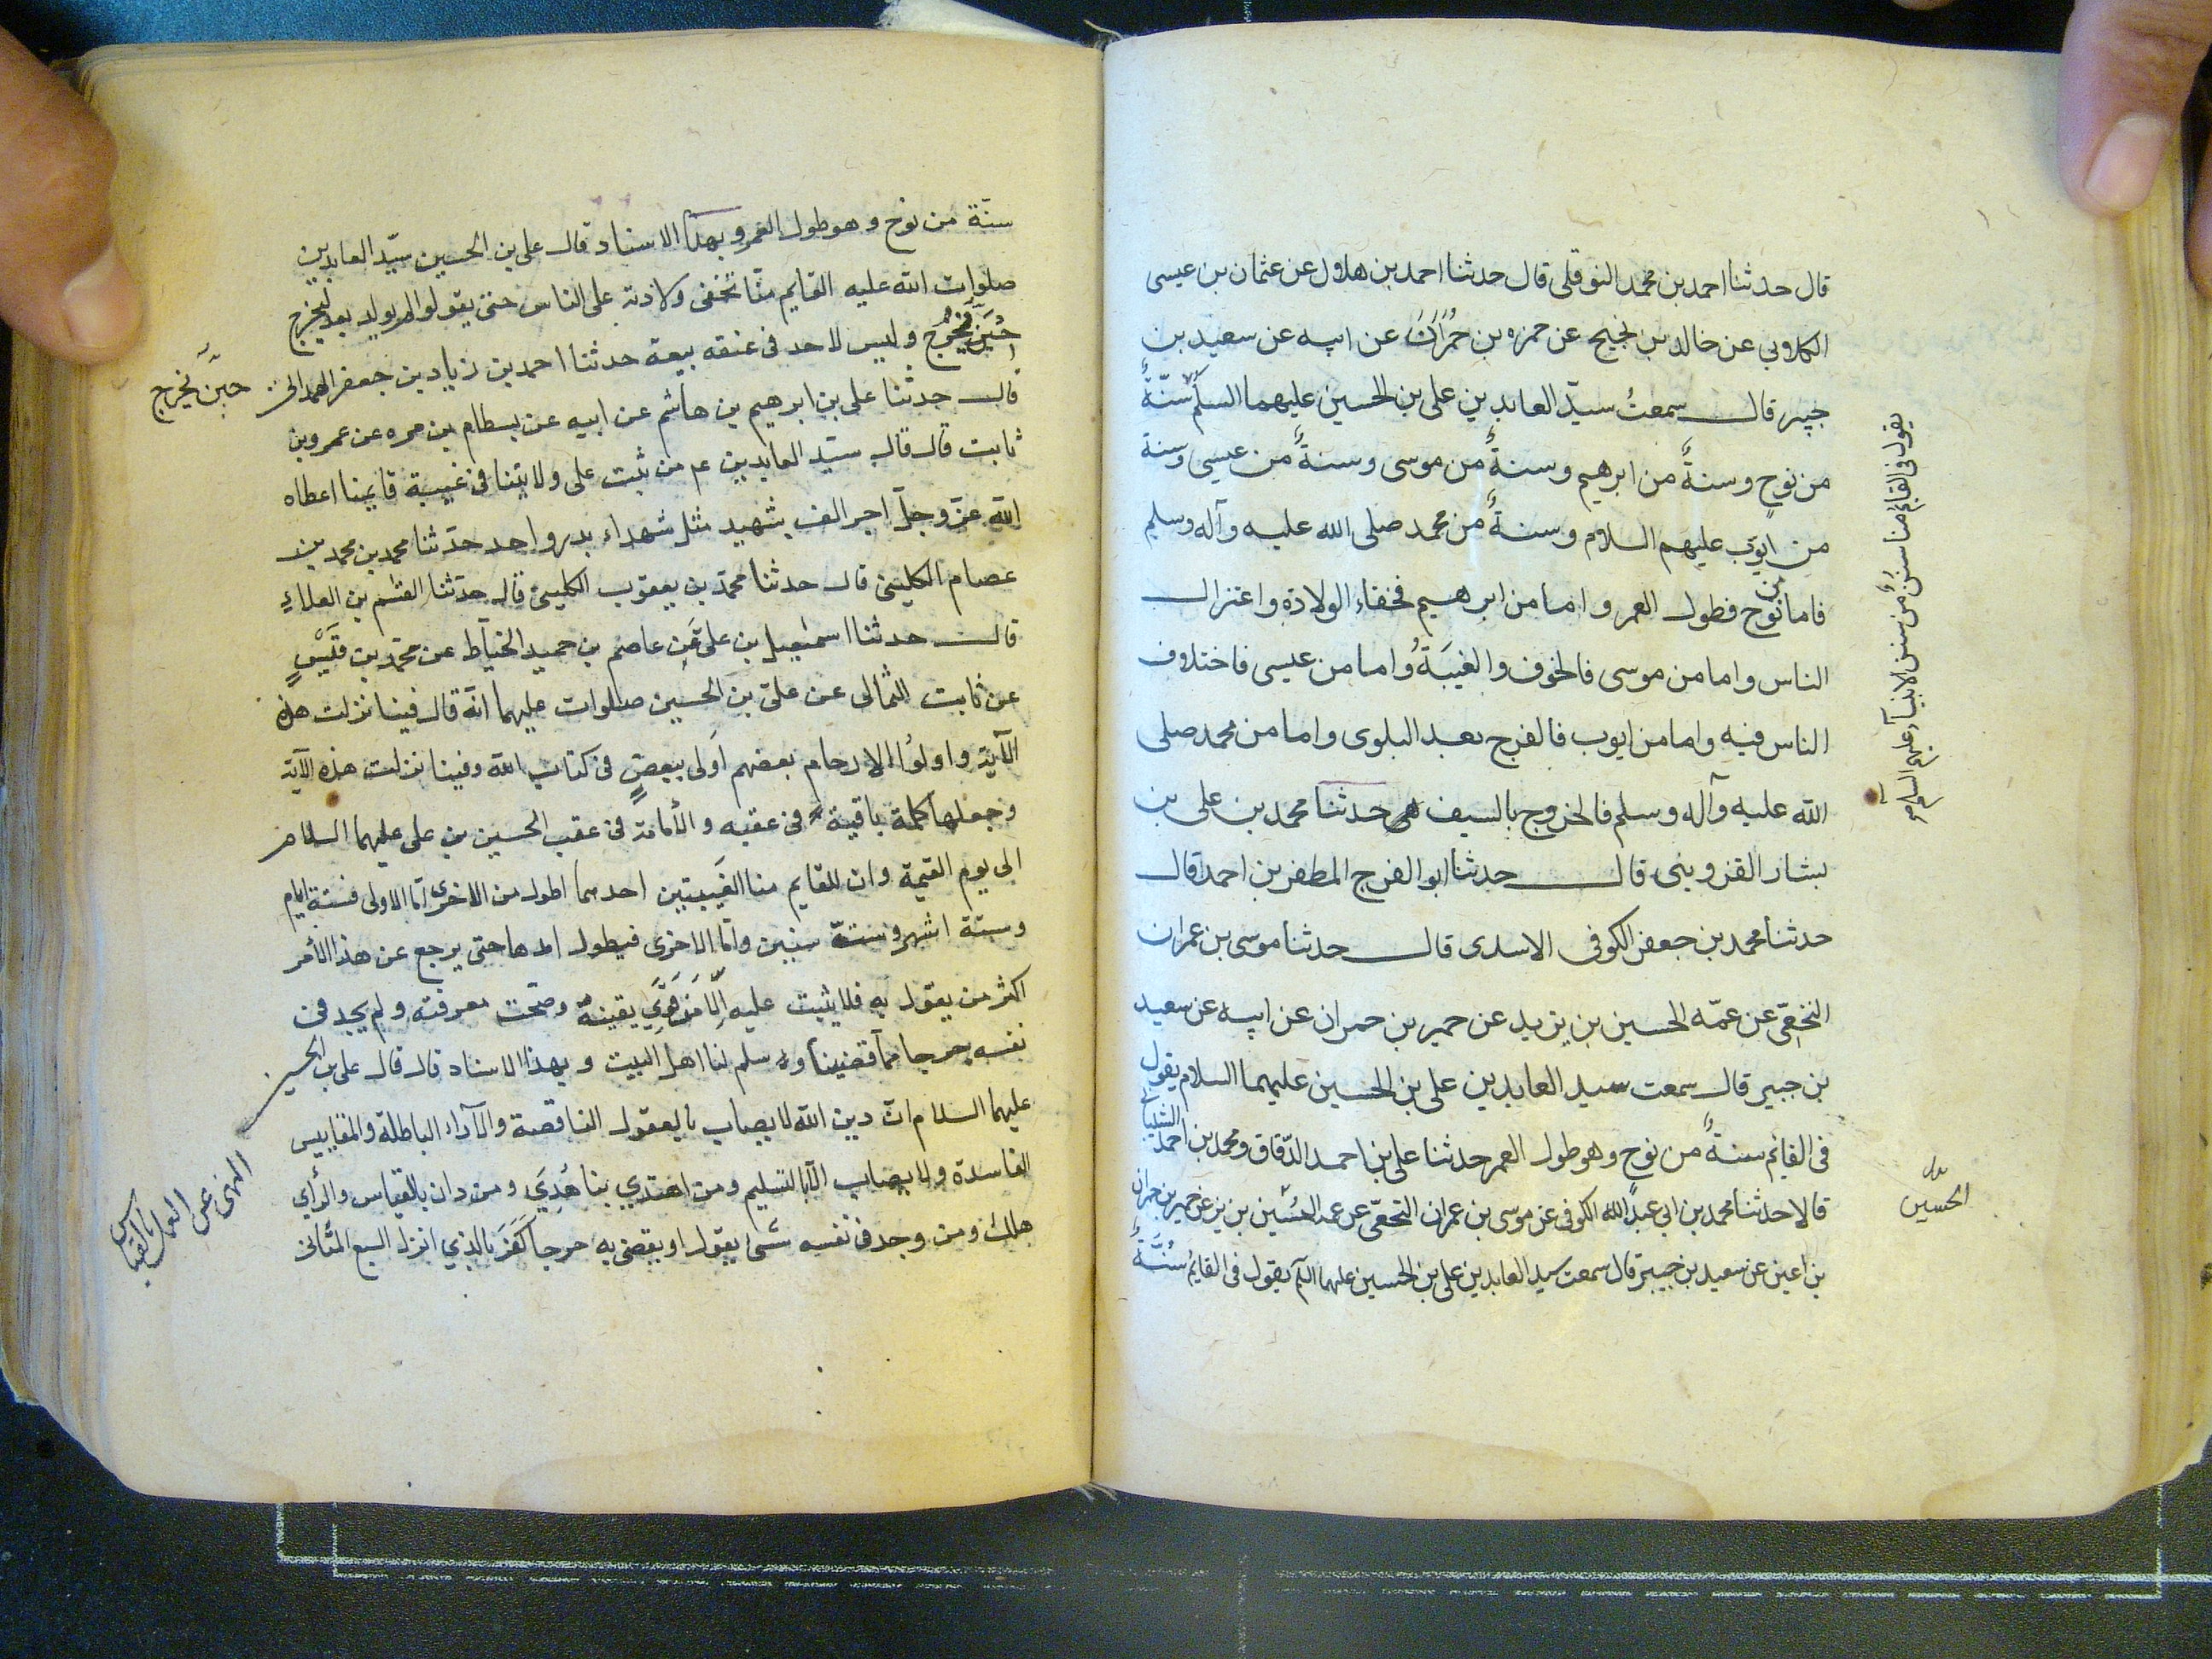 قال حدثنا احمد بن محمد النوفلى قال حدثنا احمد بن هلال عن عثمان بن عيسى
الكلابي عن خالد بن نجيح عن حمزه بن حُمران عن ابيه عن سعيد بن
جبير قال سمعتُ سيّد العابدين على بن الحسين عليهما السلم سنّةٌ
يقول فى القائم منا سُنن من سنن الانبيآء عليهم السلام
من نوحٍ وسنةٌ من ابرهيم وسنةٌ من موسى وسنةٌ من عيسى وسنة
من ايوب عليهم السلام وسنةٌ من محمد صلى الله عليه وآله وسلم
فاما من نوح فطول العمر واما من ابرهيم فخفاء الولادة واعتزال
الناس واما من موسى فالخوف والغيبَةُ واما من عيسى فاختلاف
الناس فيه واما من ايوب فالفرج بعد البلوى واما من محمد صلى
الله عليه وآله وسلم فالخروج بالسيف حدثنا محمد بن على بن
بشار القزوينى قال حدثنا ابو الفرج المظفر بن احمد قال
حدثنا محمد بن جعفر الكوفى الاسدى قال حدثنا موسى بن عمران
النخعِى عن عمّه الحسين بن يزيد عن حمير بن حمران عن ابيه عن سعيد
بن جبير قال سمعت سيد العابدين على بن الحسين عليهما السلام يقول
فى القائم سنةٌ من نوح وهو طول العمر حدثنا على بن احمد الدّقاق ومحمد بن احمد الشيبانى
قالا حدثنا محمد بن ابي عبد الله الكوفى عن موسى بن عمران النخعى عن عمه الحسين بن يزيد عن حمير بن حمران
الحسين
بن اعين عن سعيد بن جبير قال سمعت سيد العابدين على بن الحسين عليهما السلم يقول فى القايم سُنَّةٌ
سنّة من نوح وهو طول العمر وبهذا الاسناد قال على بن الحسين سيّد العابدين
صلوات الله عليه القايم منّا تخفى ولادته على الناس حتى يقولوا لم يولد بعد ليخرج
حين يخرج وليس لاحد فى عنقه بيعة حدثنا احمد بن زياد بن جعفر الهمدانى
حين يخرج
قال حدثنا على بن ابرهيم بن هاشم عن ابيه عن بسطام بن مره عن عمرو بن
ثابت قال قال سيّد العابدين عم من ثبت على ولايتنا فى غيبة قايمنا اعطاه
الله عزّ وجلّ اجر الف شهيد مثل شهداء بدر واحد حدّثنا محمد بن محمد بن
عصام الكلينى قال حدثنا محمّد بن يعقوب الكلينى قال حدّثنا القسم بن العلاءِ
قال حدثنا اسمعيل بن علىّ عَن عاصم بن حميد الخيّاط عن محمّد بن قَيْسٍ
عن ثابت الثمالى عن علىّ بن الحسين صلوات عليهما انّه قال فينا نزلت هذه
الآية واولوُا الارحام بعضهم اَولى ببعضٍ فى كتاب الله وفينا نزلت هذه الآية
وجعلها كلمة باقية فى عقبه والأمامة فى عقب الحسين بن على عليهما السلام
الى يوم القيمة وان للقايم منا الغَيبتين احدهما اطول من الاخرى امّا الاولى فستة ايام
وستة اشهر وستة سنين وامّا الاخرى فيطول امدها حتى يرجع عن هذا الأمر
اكثر من يقول به فلا يثبت عليه إلّا مَن قَوِىَ يقينهُ وصحّت معرفته ولم يجد فى
نفسه حرجا ممّا قضينا وسلم لنا اهل البيت وبهذا الاسناد قال قال على بن الحسين
عليهما السلام انّ دين الله لا يصاب بالعقول الناقصة والآراء الباطلة والمقاييس
الفاسدة ولا يصاب الّا بالتسليم ومن اهتدي بنا هُدِيَ ومن دان بالقياس والرأي
النهى عن العمل بالقياس
هلك ومن وجد فى نفسه شىء يقول او يقضى به حرجا كَفَرَ بالذي انزل السبع المثانى